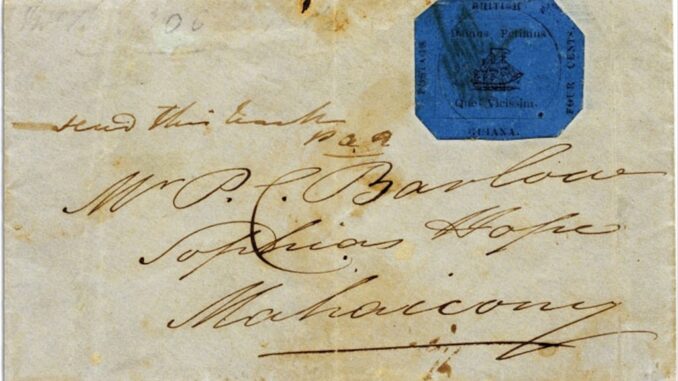 BRITISH
Damus Petimus
POSTAGE
FOUR CENTS.
Que Vicissim.
GUIANA.
send this back
Mr P. C. Barlow
Sophias Hope
Mahaicony